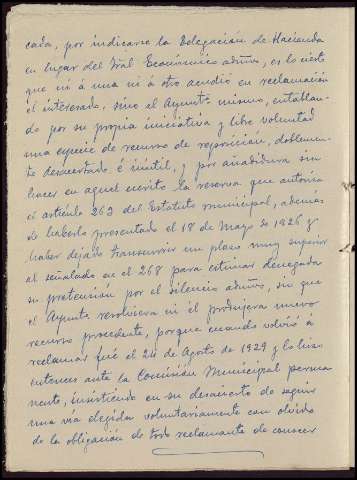 cada, por indicarse la Delegación de Hacienda
en lugar del Tñal Económico admvo, es lo cierto
que ni á una ni á otro acudió en reclamación
el interesado, sino el Ayuntº mismo, entablan-
do por su propia iniciativa y libre voluntad
una especie de recurso de reposición, doblemen-
te desacertado é inútil, y por añadidura sin
hacer en aquel escrito la reserva que autoriza
el artículo 262 del Estatuto municipal, además
de haberlo presentado el 18 de Mayo de 1926 y
haber dejado transcurrir un plazo muy superior
al señalado en el 268 para estimar denegada
su pretensión por el silencio admvo, sin que
el Ayuntº resolviera ni él produjera nuevo
recurso procedente, porque cuando volvió á
reclamar fué el 24 de Agosto de 1929 y lo hizo
entonces ante la Comisión Municipal perma
nente, insistiendo en su desacierto de seguir
una vía elegida voluntariamente con olvido
de la obligación de todo reclamante de conocer